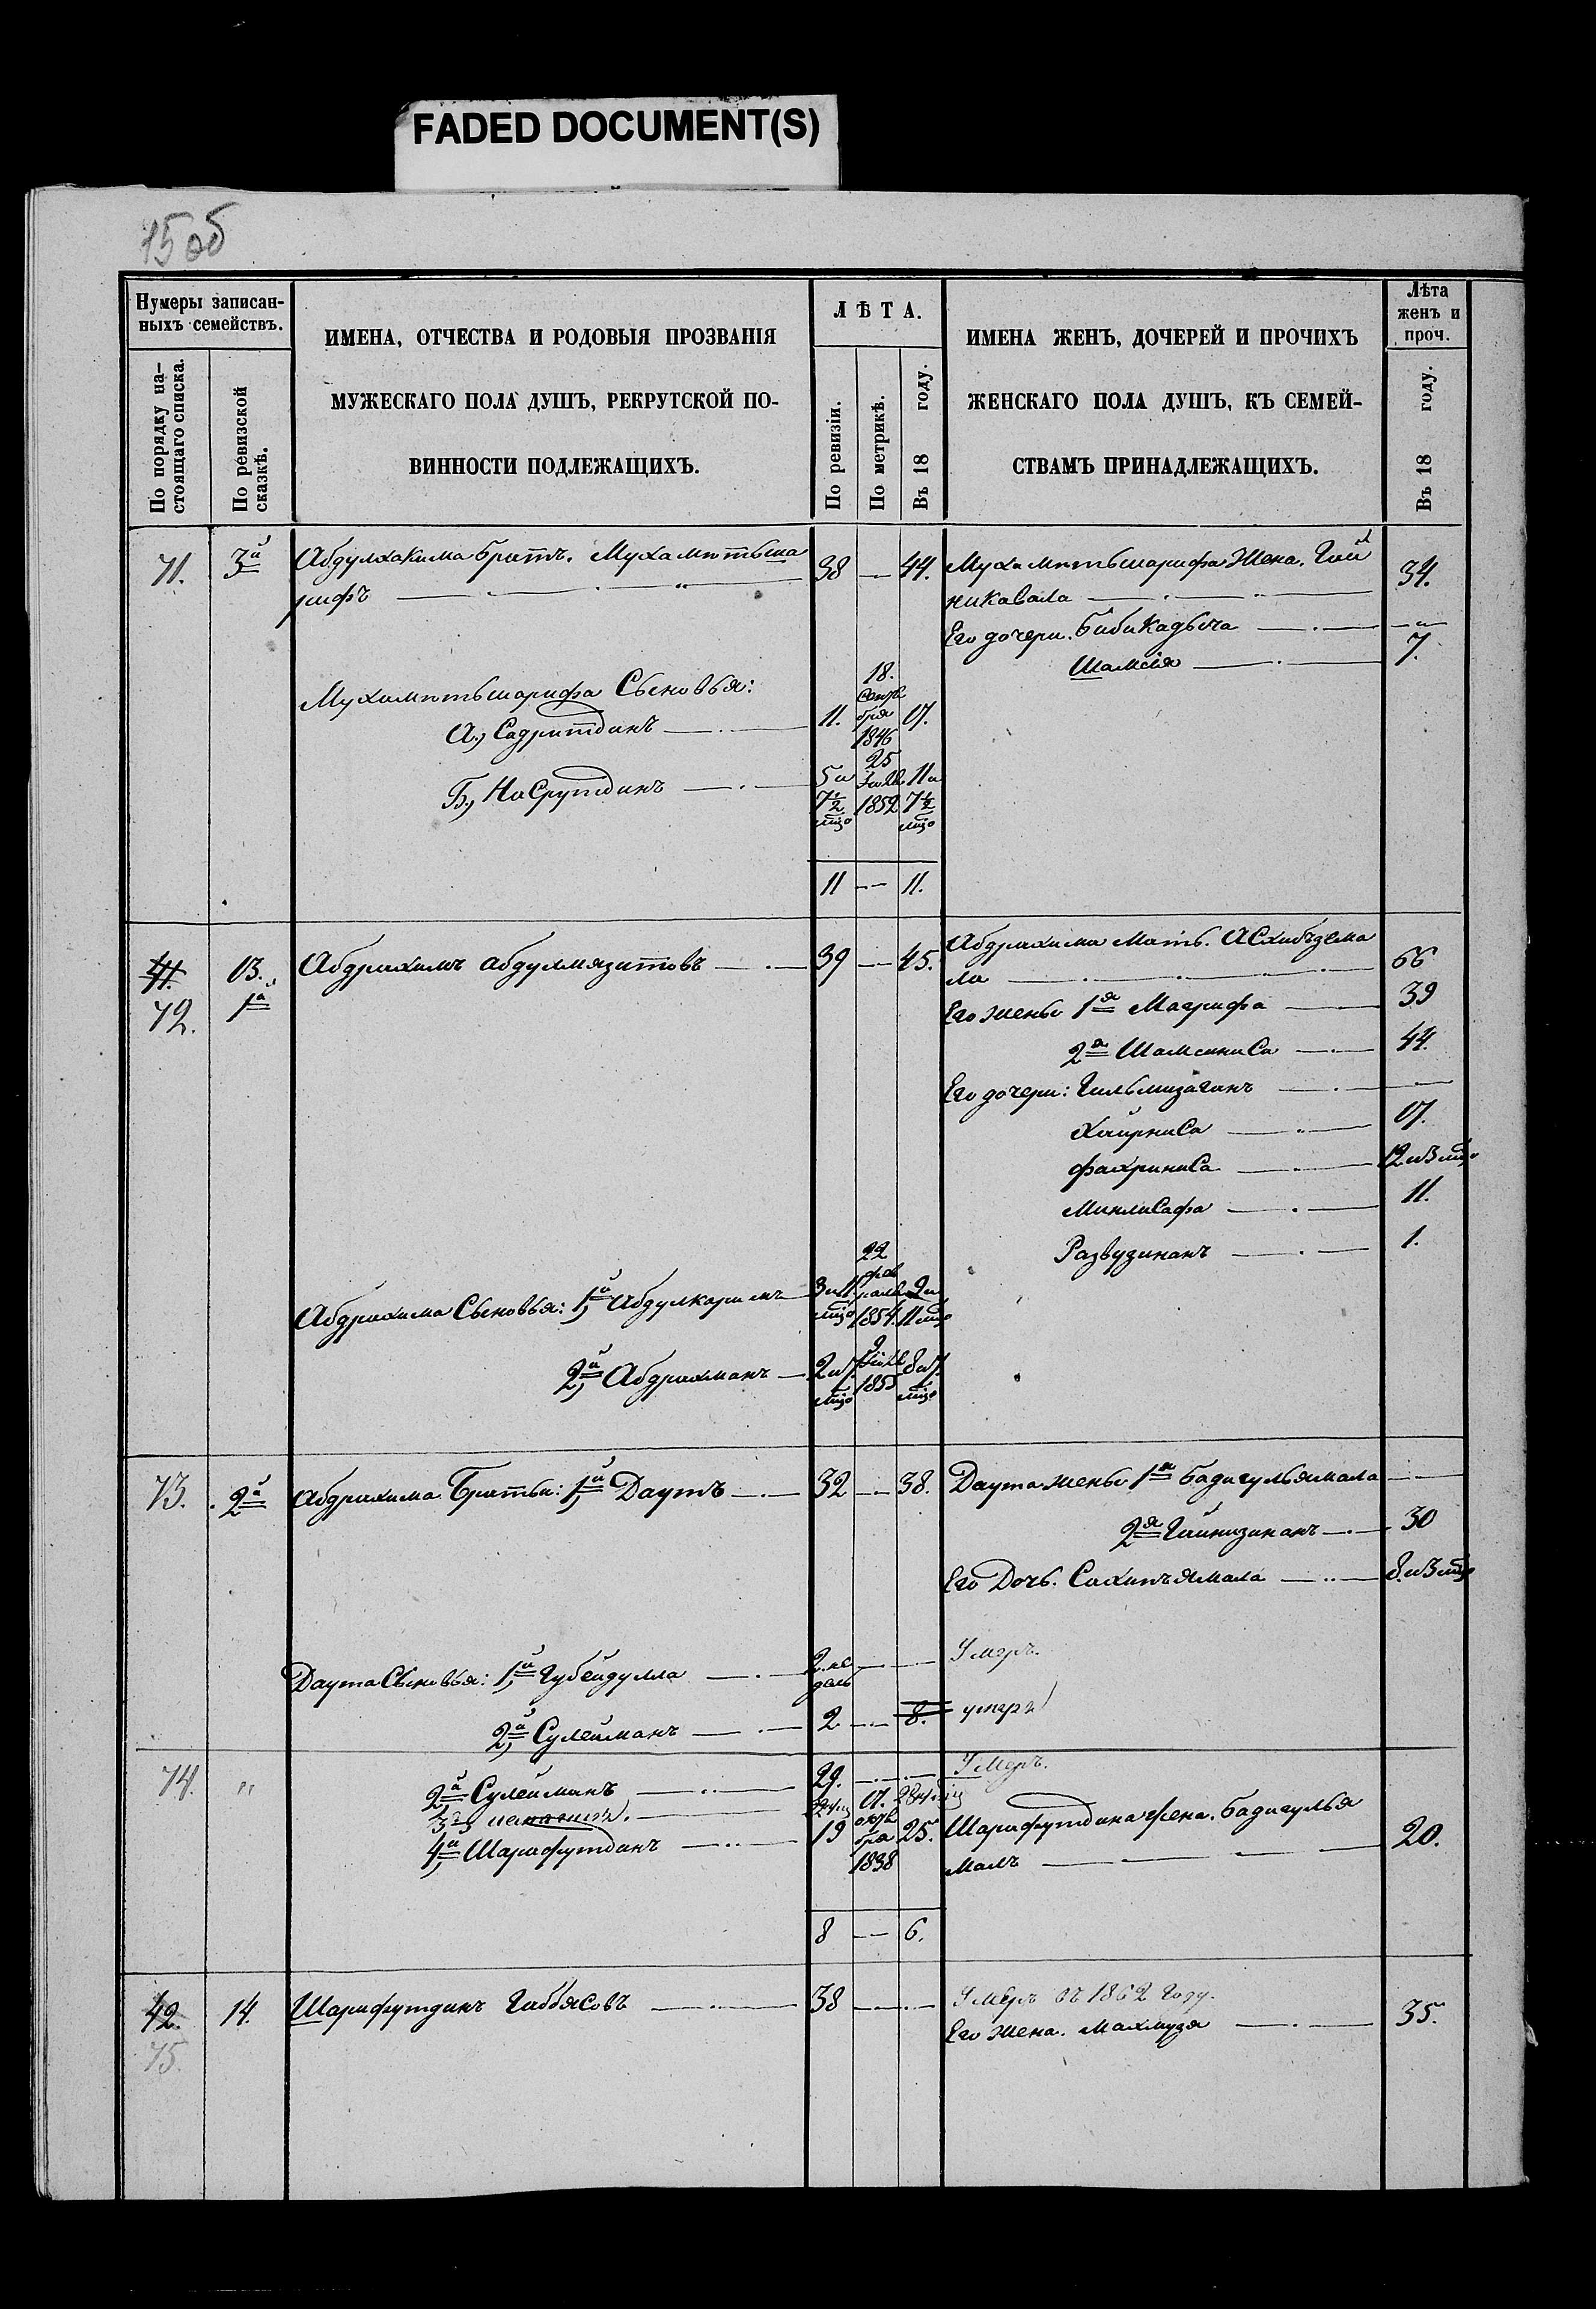 FADED DOCUMENT(S)
15 об
Нумеры записан-
ныхъ семействъ.
По порядку на-
стоящаго списка.
По ревизской
сказкѣ.
ИМЕНА, ОТЧЕСТВА И РОДОВЫЯ ПРОЗВАНІЯ
МУЖЕСКАГО ПОЛА ДУШЪ, РЕКРУТСКОЙ ПО-
ВИННОСТИ ПОДЛЕЖАЩИХЪ.
ЛѢТА.
По ревизіи.
По метрикѣ.
Въ 18 году.
ИМЕНА ЖЕНЪ, ДОЧЕРЕЙ И ПРОЧИХЪ
ЖЕНСКАГО ПОЛА ДУШЪ, КЪ СЕМЕЙ-
СТВАМЪ ПРИНАДЛЕЖАЩИХЪ.
Лѣта
женъ и
проч.
Въ 18 году.
71. 3й Абдулхакима братъ. Мухаметьша 38 — 44. Мухаметьшарифа Жена. Гай 34.
рифъ
никавала
Его дочери. Бибикадыча — „ —
Шамсія 7.
Мухаметьшарифа Сыновья:
А., Садритдинъ 11. 18. Сентября 1846 17.
Б., Насрутдинъ 5 и 7½ мцо 25 1852 11 и 7½ мцо
11 — 11.
41. 13. Абдрахимъ Абдулмязитовъ 39 — 45. Абдрахима мать. Асхибъдзема
72. 1й
ла 66
Его жены 1я Магрифа 39
2я Шамсиниса 44.
Его дочери: Гильмизаганъ —
Хайрниса 17.
Фахриниса 12 и 3 мцо
Минлисафа 11.
Развузинанъ 1.
Абдрахима Сыновья: 1й, Абдулкаримъ 3 и 11 мцо 22 февраля 1854. 9 и 11 мцо
2й, Абдрахманъ 2 и 7 мцо 9 1855 8 и 7 мцо
73. 2й Абдрахима Братьи: 1й, Даутъ 32 — 38. Даута жены 1я Бадигульямала —
2я Гайнизинанъ 30
Его Дочь. Сахипъямала 8 и 3 мцо
Даута Сыновья: 1й, Губейдулла 2. не дель — Умеръ.
2й, Сулейманъ 2 — 8. умеръ
74. „ 2й, Сулейманъ 29. — Умеръ.
4й, Шарифутдинъ 19 17. октября 1838 25. Шарифутдина жена. Бадигулья
малъ 20.
8 — 6.
42. 14. Шарифутдинъ Габбясовъ 38 — Умеръ въ 1862 году.
75.
Его жена. Махмузя 35.